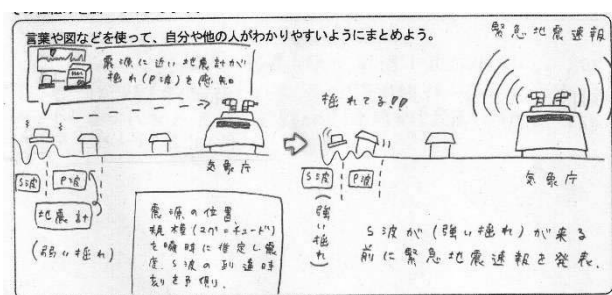 言葉や図などを使って、自分や他の人がわかりやすいようにまとめよう。
震源に近い地震計が
揺れ(P波)を感知
気象庁
S波
P波
地震計
(弱い揺れ)
震源の位置、
規模(マグニチュード)
を瞬時に推定し震
度、S波の到達時
刻を予測
緊急地震速報
揺れてる!!
気象庁
S波
P波
(強い揺れ)
S波が(強い揺れ)が来る
前に緊急地震速報を発表.